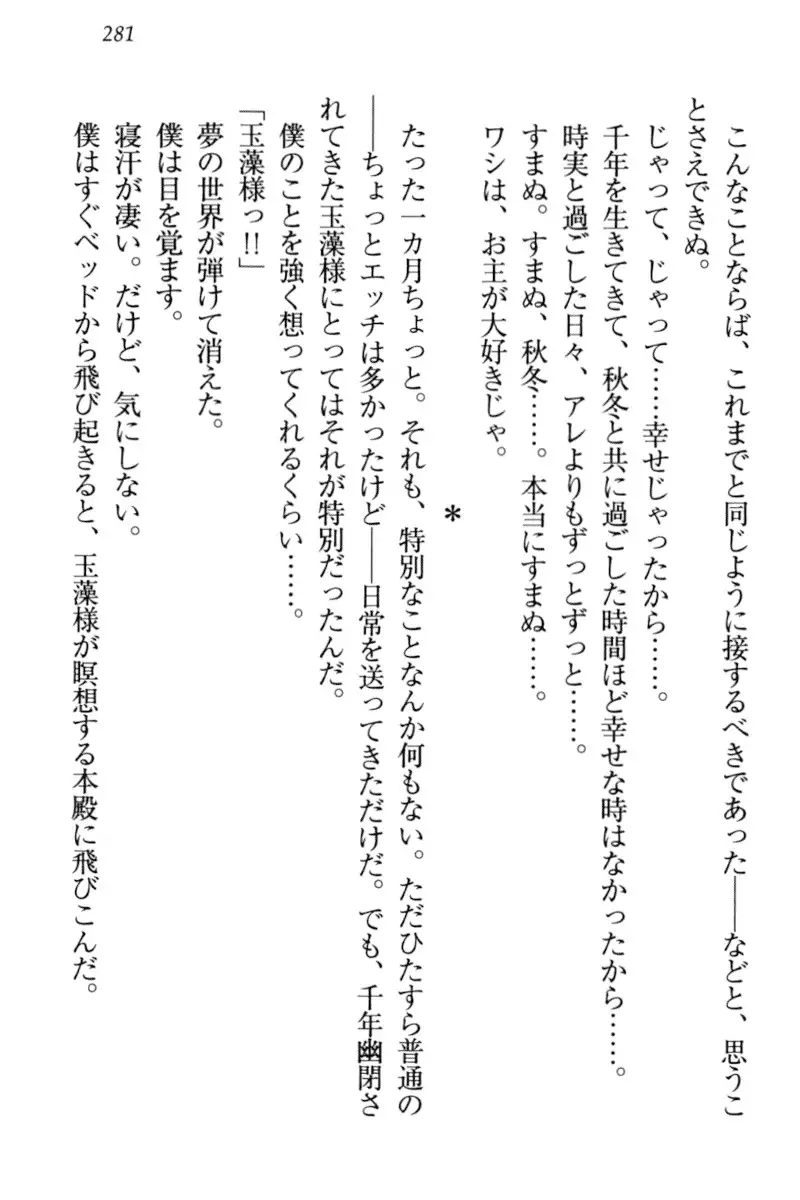 281
こんなことならば、これまでと同じように接するべきであった――などと、思うこ
とさえできぬ。
じゃって、じゃって……幸せじゃったから……。
千年を生きてきて、秋冬と共に過ごした時間ほど幸せな時はなかったから……。
時実と過ごした日々、アレよりもずっとずっと……。
すまぬ。すまぬ、秋冬……。本当にすまぬ……。
ワシは、お主が大好きじゃ。
＊
たった一カ月ちょっと。それも、特別なことなんか何もない。ただひたすら普通の
――ちょっとエッチは多かったけど――日常を送ってきただけだ。でも、千年幽閉さ
れてきた玉藻様にとってはそれが特別だったんだ。
僕のことを強く想ってくれるくらい……。
「玉藻様っ!!」
夢の世界が弾けて消えた。
僕は目を覚ます。
寝汗が凄い。だけど、気にしない。
僕はすぐベッドから飛び起きると、玉藻様が瞑想する本殿に飛びこんだ。